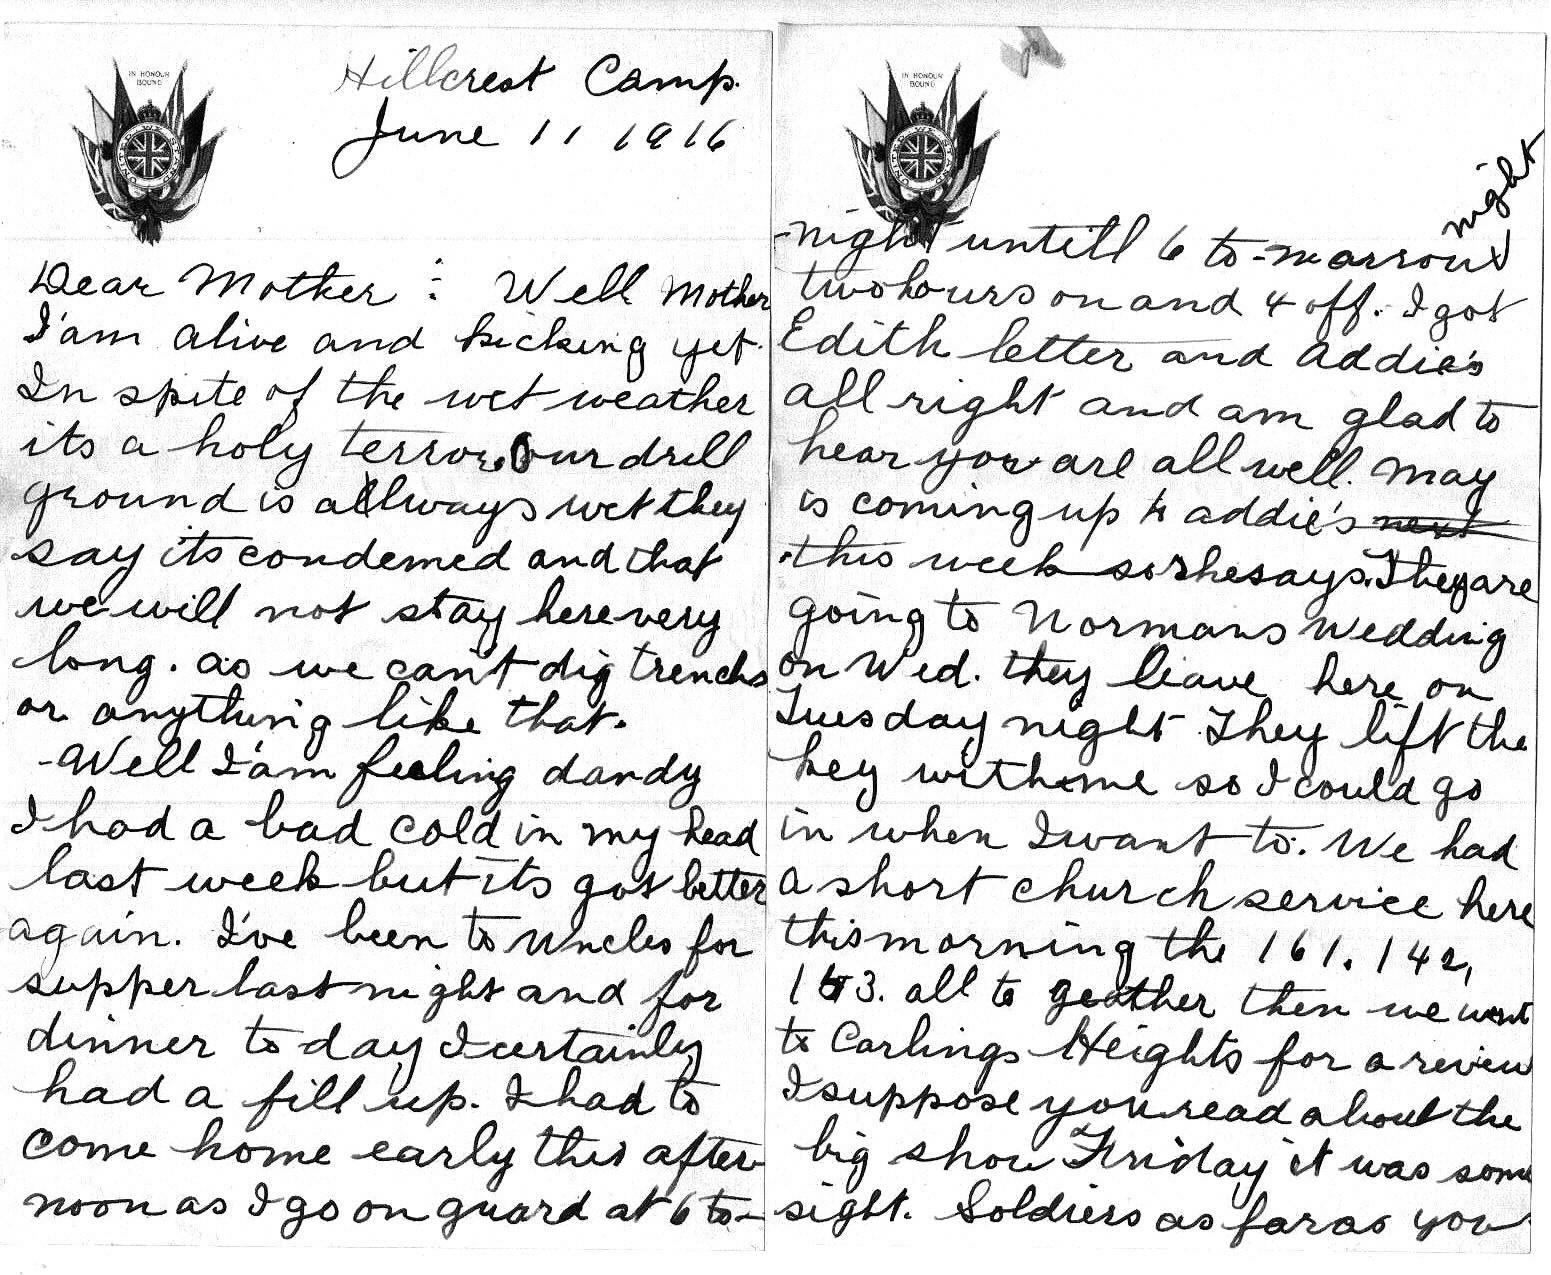 IN HONOUR
BOUND
UNITED WE STAND
Hillcrest Camp.
June 11 1916
Dear Mother : Well Mother
I'am alive and kicking yet.
In spite of the wet weather
its a holy terror. Our drill
ground is allways wet they
say its condemed and that
we will not stay here very
long. as we can't dig trenchs
or anything like that.
-Well I'am feeling dandy
I had a bad cold in my head
last week but its got better
again. I've been to Uncles for
supper last night and for
dinner to day I certainly
had a fill up. I had to
come home early this after-
noon as I go on guard at 6 to-
IN HONOUR
BOUND
UNITED WE STAND
night
-night untill 6 to-marrow
two hours on and 4 off. I got
Edith letter and Addie's
all right and am glad to
hear you are all well. May
is coming up to addie's next
this week so she says. They are
going to Normans Wedding
on Wed. they leave here on
Tuesday night They lift the
key with me so I could go
in when I want to. We had
a short church service here
this morning the 161. 142,
153. all to geather then we went
to Carlings Heights for a review
I suppose you read about the
big show Friday it was some
sight. Soldiers as far as you